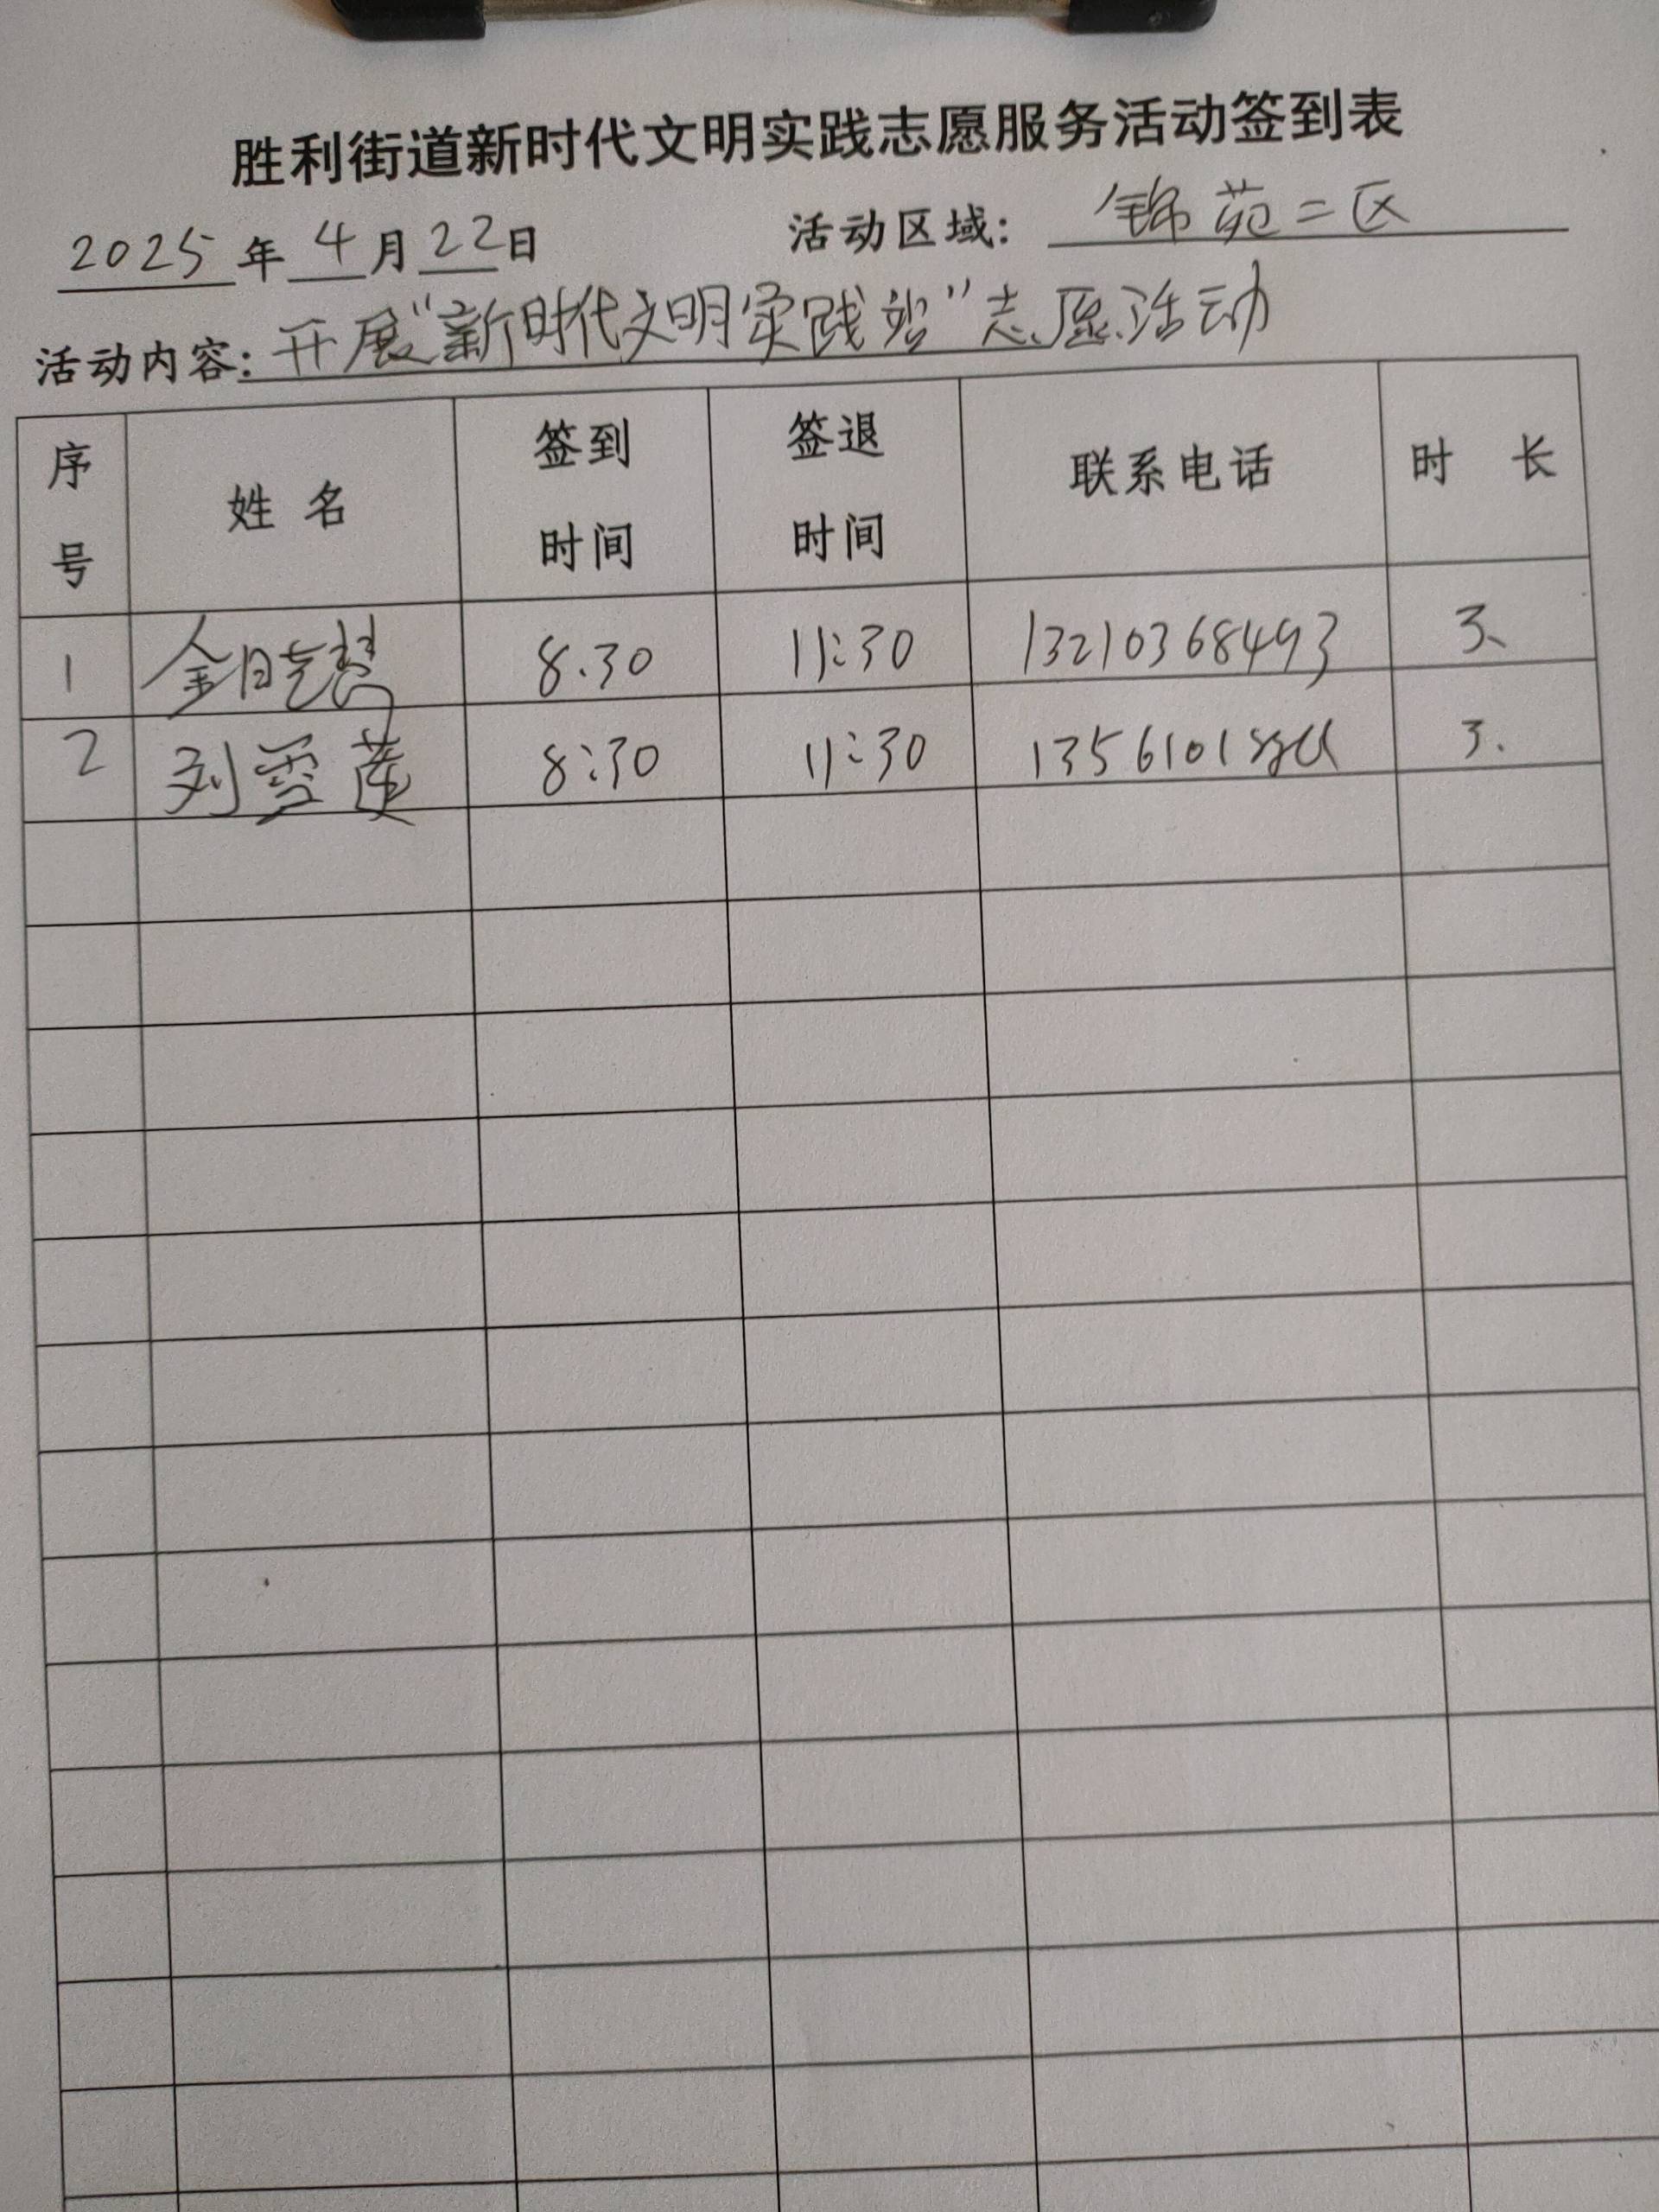 胜利街道新时代文明实践志愿服务活动签到表
2025年4月22日 活动区域：锦苑二区
活动内容：开展“新时代文明实践站”志愿活动
序号 姓名 签到时间 签退时间 联系电话 时长
1 金晓慧 8.30 11:30 13210368493 3、
2 刘雪莲 8:30 11:30 3.